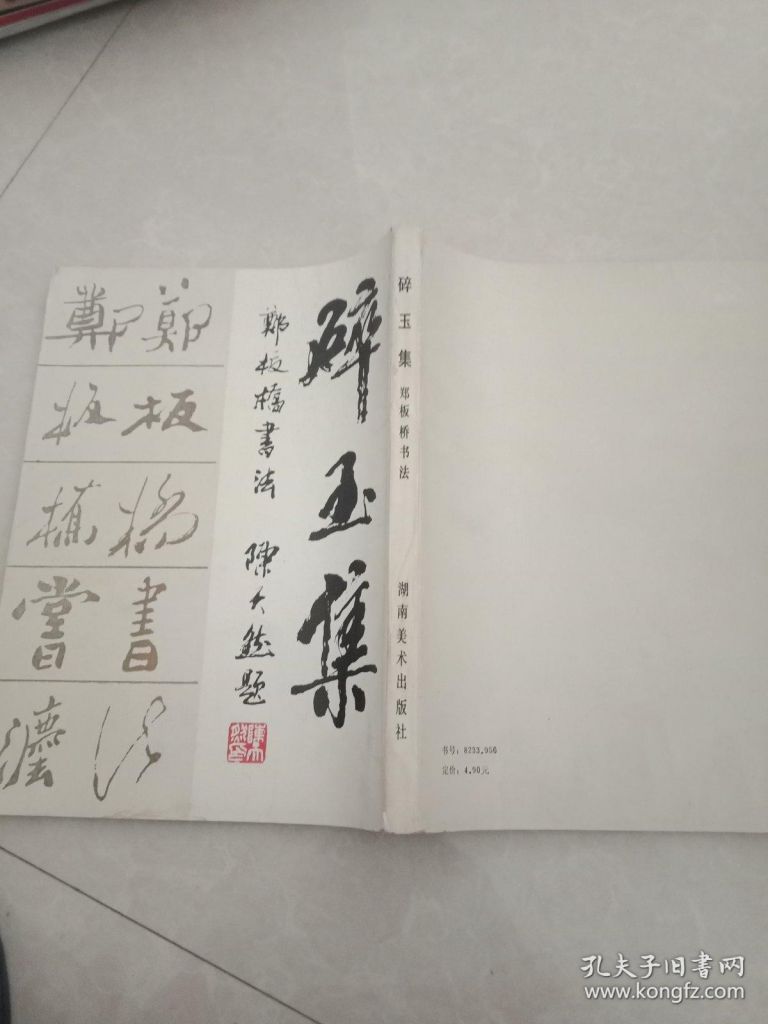 碎玉集
鄭板橋書法 陳大𤋮題
鄭鄭
板板
橋橋
書書
法灋
碎玉集 郑板桥书法 湖南美术出版社
书号：8233.956
定价：4.90元
孔夫子旧书网
www.kongfz.com